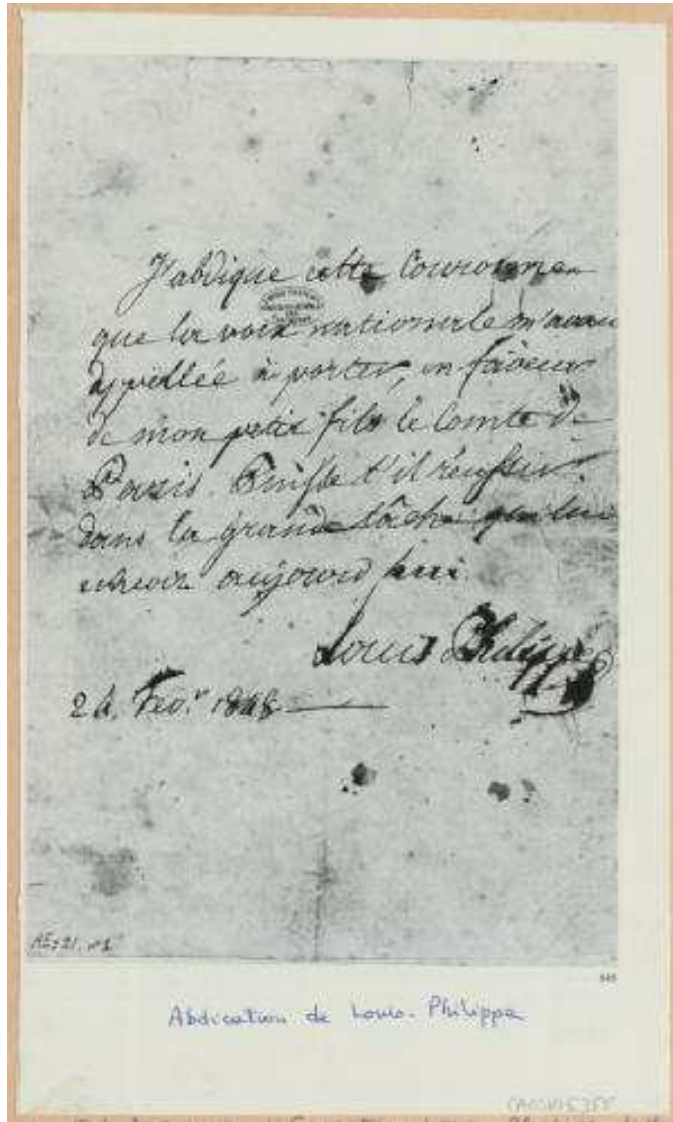 J'abdique cette Couronne
que la voix nationale m'avait
appellée à porter, en faveur
de mon petit fils le Comte de
Paris. Puisse t'il réussir
dans la grande tâche qui lui
echeoit aujourd'hui.
Louis Philippe
24. Fev.r 1848
AE I 21. n°1
Abdication de Louis-Philippe